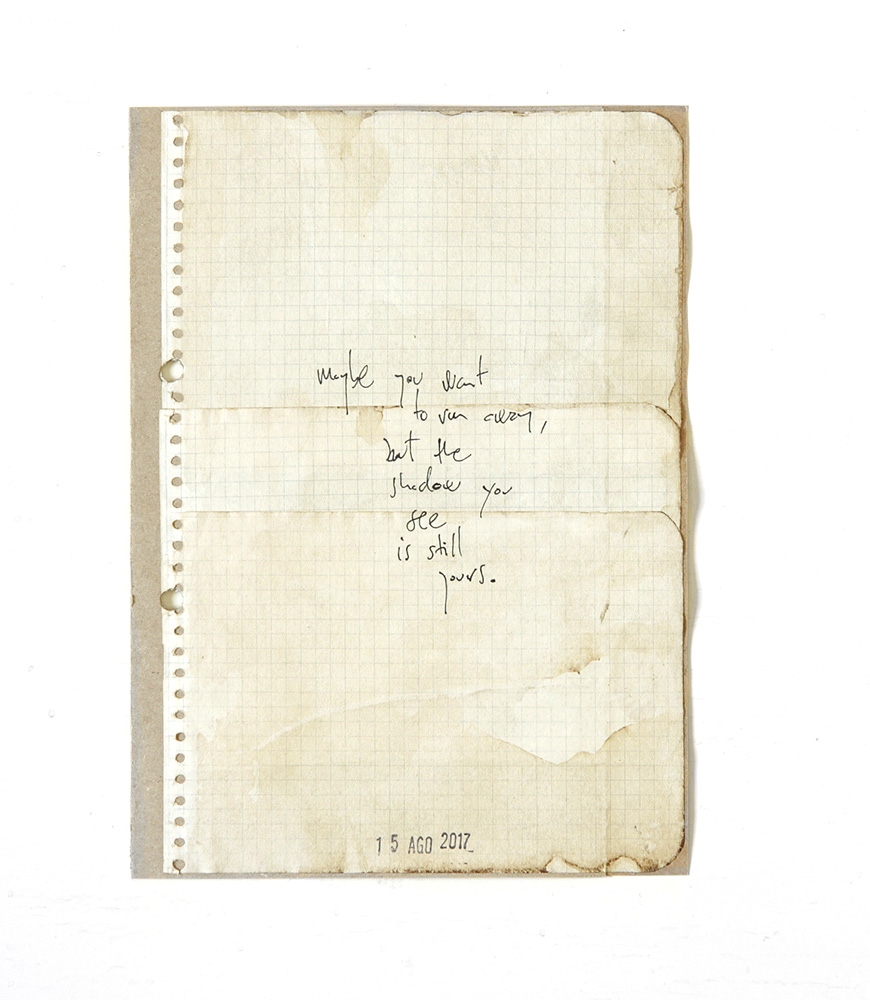 Maybe you want
to run away,
but the
shadow you
see
is still
yours.
15 AGO 2017